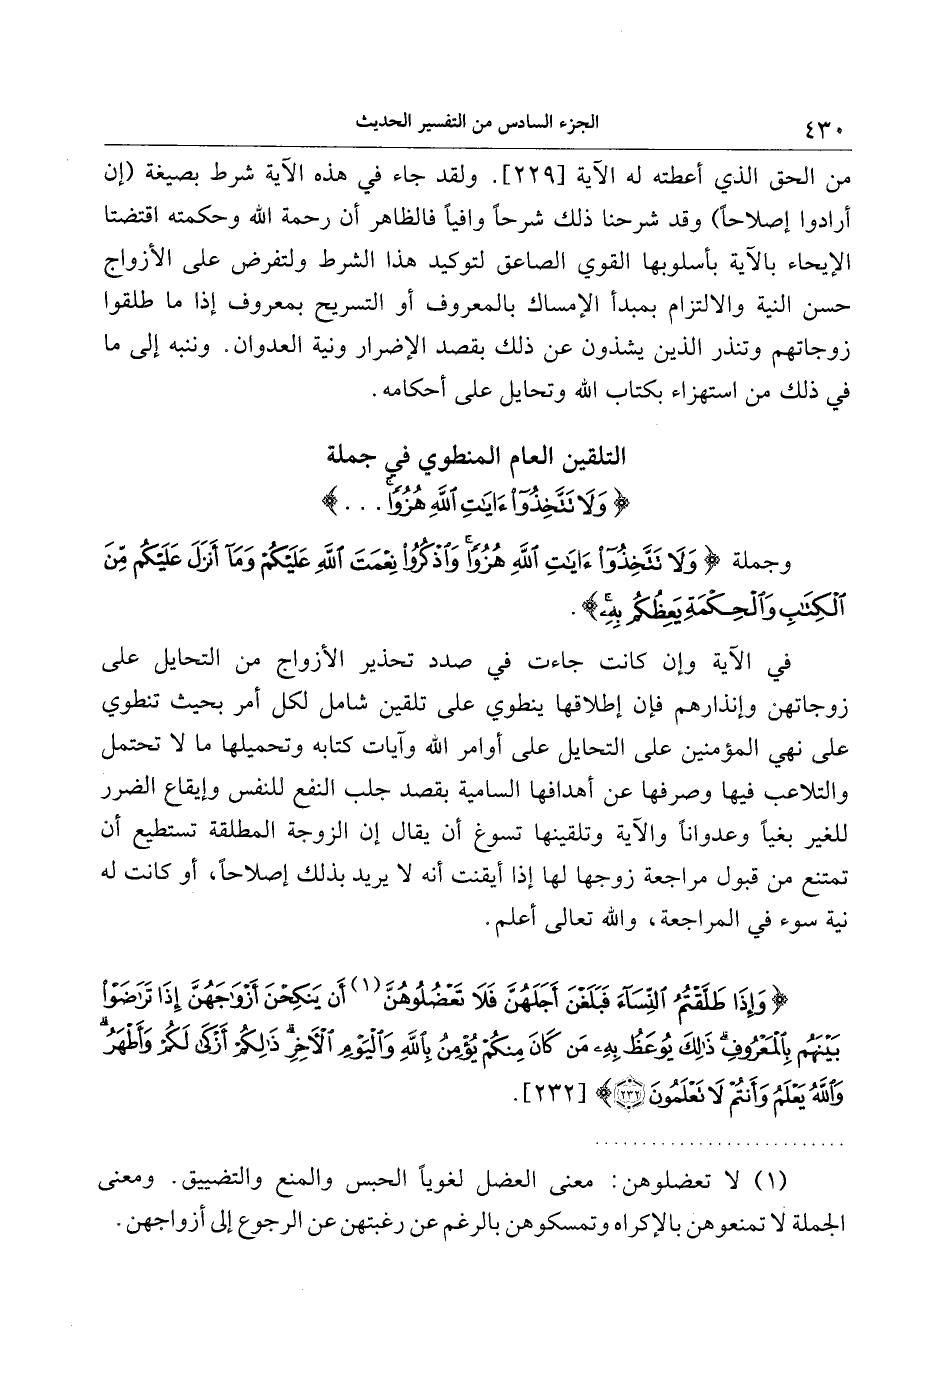 ٤٣٠
الجزء السادس من التفسير الحديث
من الحق الذي أعطته له الآية [٢٢٩]. ولقد جاء في هذه الآية شرط بصيغة (إن
أرادوا إصلاحاً) وقد شرحنا ذلك شرحاً وافياً فالظاهر أن رحمة الله وحكمته اقتضتا
الإيحاء بالآية بأسلوبها القوي الصاعق لتوكيد هذا الشرط ولتفرض على الأزواج
حسن النية والالتزام بمبدأ الإمساك بالمعروف أو التسريح بمعروف إذا ما طلقوا
زوجاتهم وتنذر الذين يشذون عن ذلك بقصد الإضرار ونية العدوان. وننبه إلى ما
في ذلك من استهزاء بكتاب الله وتحايل على أحكامه.
التلقين العام المنطوي في جملة
﴿ وَلَا تَتَّخِذُوٓا۟ ءَايَٰتِ ٱللَّهِ هُزُوًا ۚ . . . ﴾
وجملة ﴿ وَلَا تَتَّخِذُوٓا۟ ءَايَٰتِ ٱللَّهِ هُزُوًا ۚ وَٱذْكُرُوا۟ نِعْمَتَ ٱللَّهِ عَلَيْكُمْ وَمَآ أَنزَلَ عَلَيْكُم مِّنَ
ٱلْكِتَٰبِ وَٱلْحِكْمَةِ يَعِظُكُم بِهِۦ ۚ ﴾.
في الآية وإن كانت جاءت في صدد تحذير الأزواج من التحايل على
زوجاتهن وإنذارهم فإن إطلاقها ينطوي على تلقين شامل لكل أمر بحيث تنطوي
على نهي المؤمنين على التحايل على أوامر الله وآيات كتابه وتحميلها ما لا تحتمل
والتلاعب فيها وصرفها عن أهدافها السامية بقصد جلب النفع للنفس وإيقاع الضرر
للغير بغياً وعدواناً والآية وتلقينها تسوغ أن يقال إن الزوجة المطلقة تستطيع أن
تمتنع من قبول مراجعة زوجها لها إذا أيقنت أنه لا يريد بذلك إصلاحاً، أو كانت له
نية سوء في المراجعة، والله تعالى أعلم.
﴿ وَإِذَا طَلَّقْتُمُ ٱلنِّسَآءَ فَبَلَغْنَ أَجَلَهُنَّ فَلَا تَعْضُلُوهُنَّ (١) أَن يَنكِحْنَ أَزْوَٰجَهُنَّ إِذَا تَرَٰضَوْا۟
بَيْنَهُم بِٱلْمَعْرُوفِ ۗ ذَٰلِكَ يُوعَظُ بِهِۦ مَن كَانَ مِنكُمْ يُؤْمِنُ بِٱللَّهِ وَٱلْيَوْمِ ٱلْءَاخِرِ ۗ ذَٰلِكُمْ أَزْكَىٰ لَكُمْ وَأَطْهَرُ ۗ
وَٱللَّهُ يَعْلَمُ وَأَنتُمْ لَا تَعْلَمُونَ ۝٢٣٢ ﴾ [٢٣٢].
(١) لا تعضلوهن: معنى العضل لغوياً الحبس والمنع والتضييق. ومعنى
الجملة لا تمنعوهن بالإكراه وتمسكوهن بالرغم عن رغبتهن عن الرجوع إلى أزواجهن.